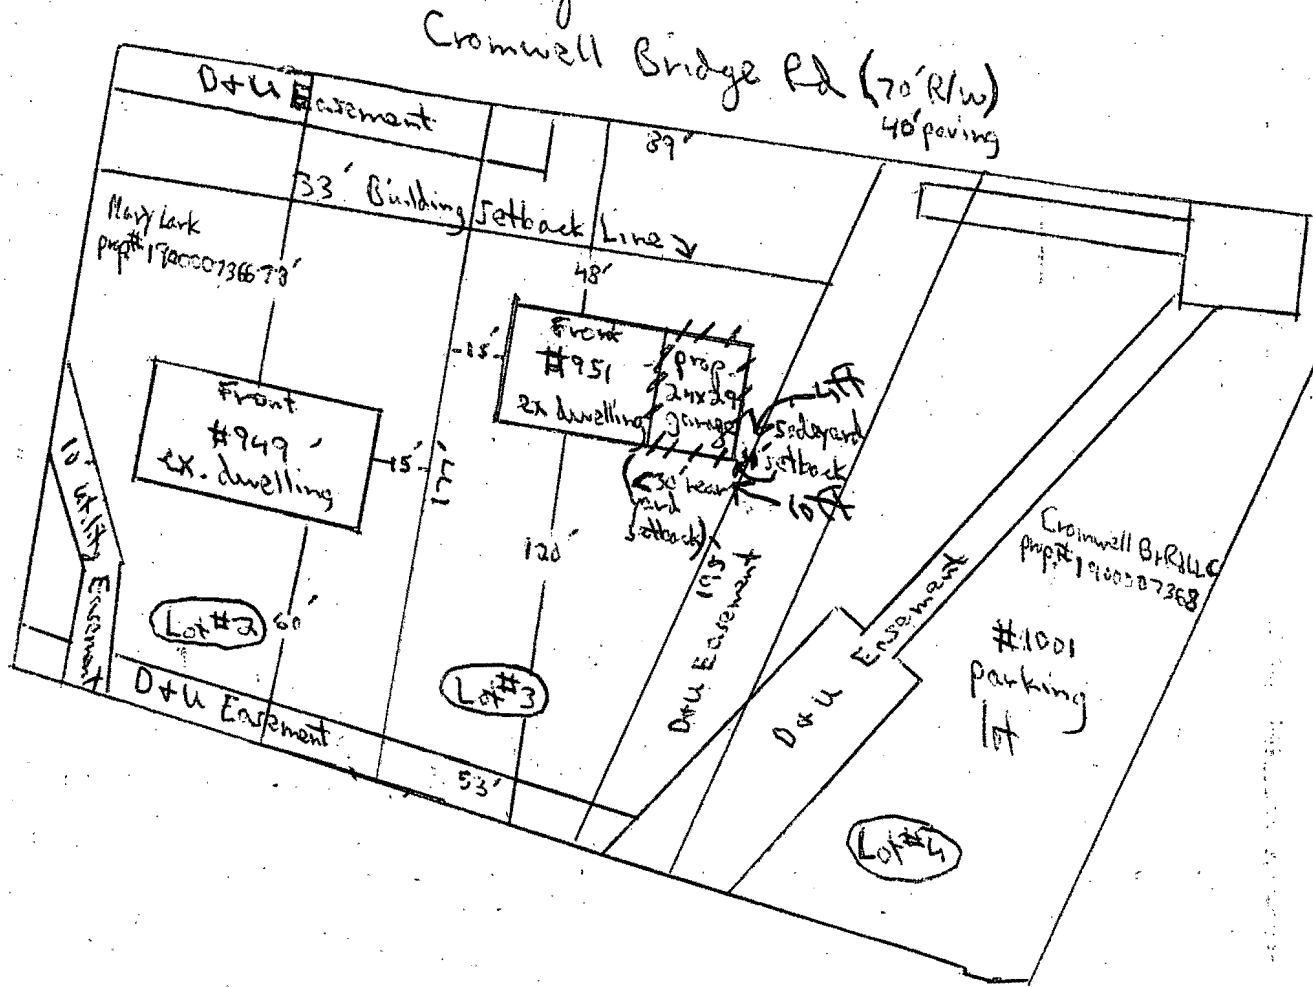 Cromwell Bridge Rd (70' R/W)
40' paving
D+U Easement
89'
33' Building Setback Line
Mary Lark
prop# 1900007366
78'
48'
Front
#951
ex dwelling
prop.
24x29
garage
15'
4ft
sideyard
setback
10ft
(30' rear
yard
setback)
Front
#949
ex. dwelling
15'
171'
120'
195'
D+U Easement
10' utility Easement
Lot #2
60'
Lot #3
D+U Easement
53'
D+U Easement
Cromwell Br Rd LLC
prop# 1900007368
#1001
parking
lot
Lot #4